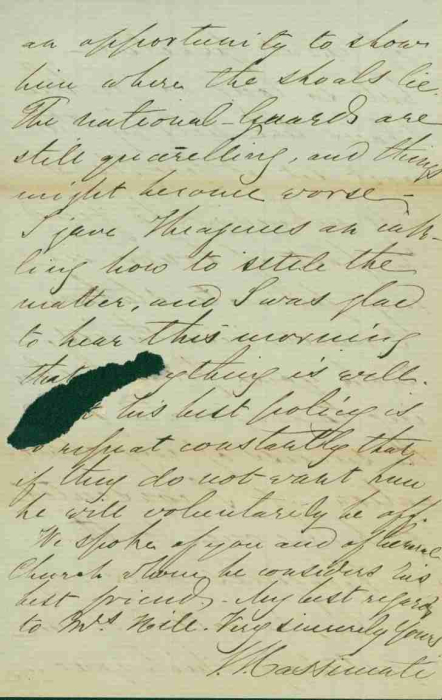 an opportunity to show
him where the shoals lie.
The national-Guards are
still quarelling, and things
might become worse.
I gave an ink-
ling how to settle the
matter, and I was glad
to hear this morning
that ything is well.
his best policy is
to repeat constantly that
if they do not want him
he will voluntarily be off.
We spoke of you and of
Church whom he considers his
best friends. My best regards
to Mrs Hill. Very sincerely Yours